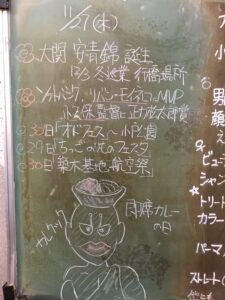 11/27(木)
㊗大関 安青錦 誕生
12/3 冬巡業 行橋場所
㊗ソフトバンク、リバン・モイネロMVP
小久保監督に正力松太郎賞
◎30日「オドフェス」小戸公園
◎29日ちっごの光のフェスタ
◎30日「築木基地・航空祭」
国席カレー
の日
男
顔
小
ビュー
シャン
☆トリート
カラー
パーマ
ストレート